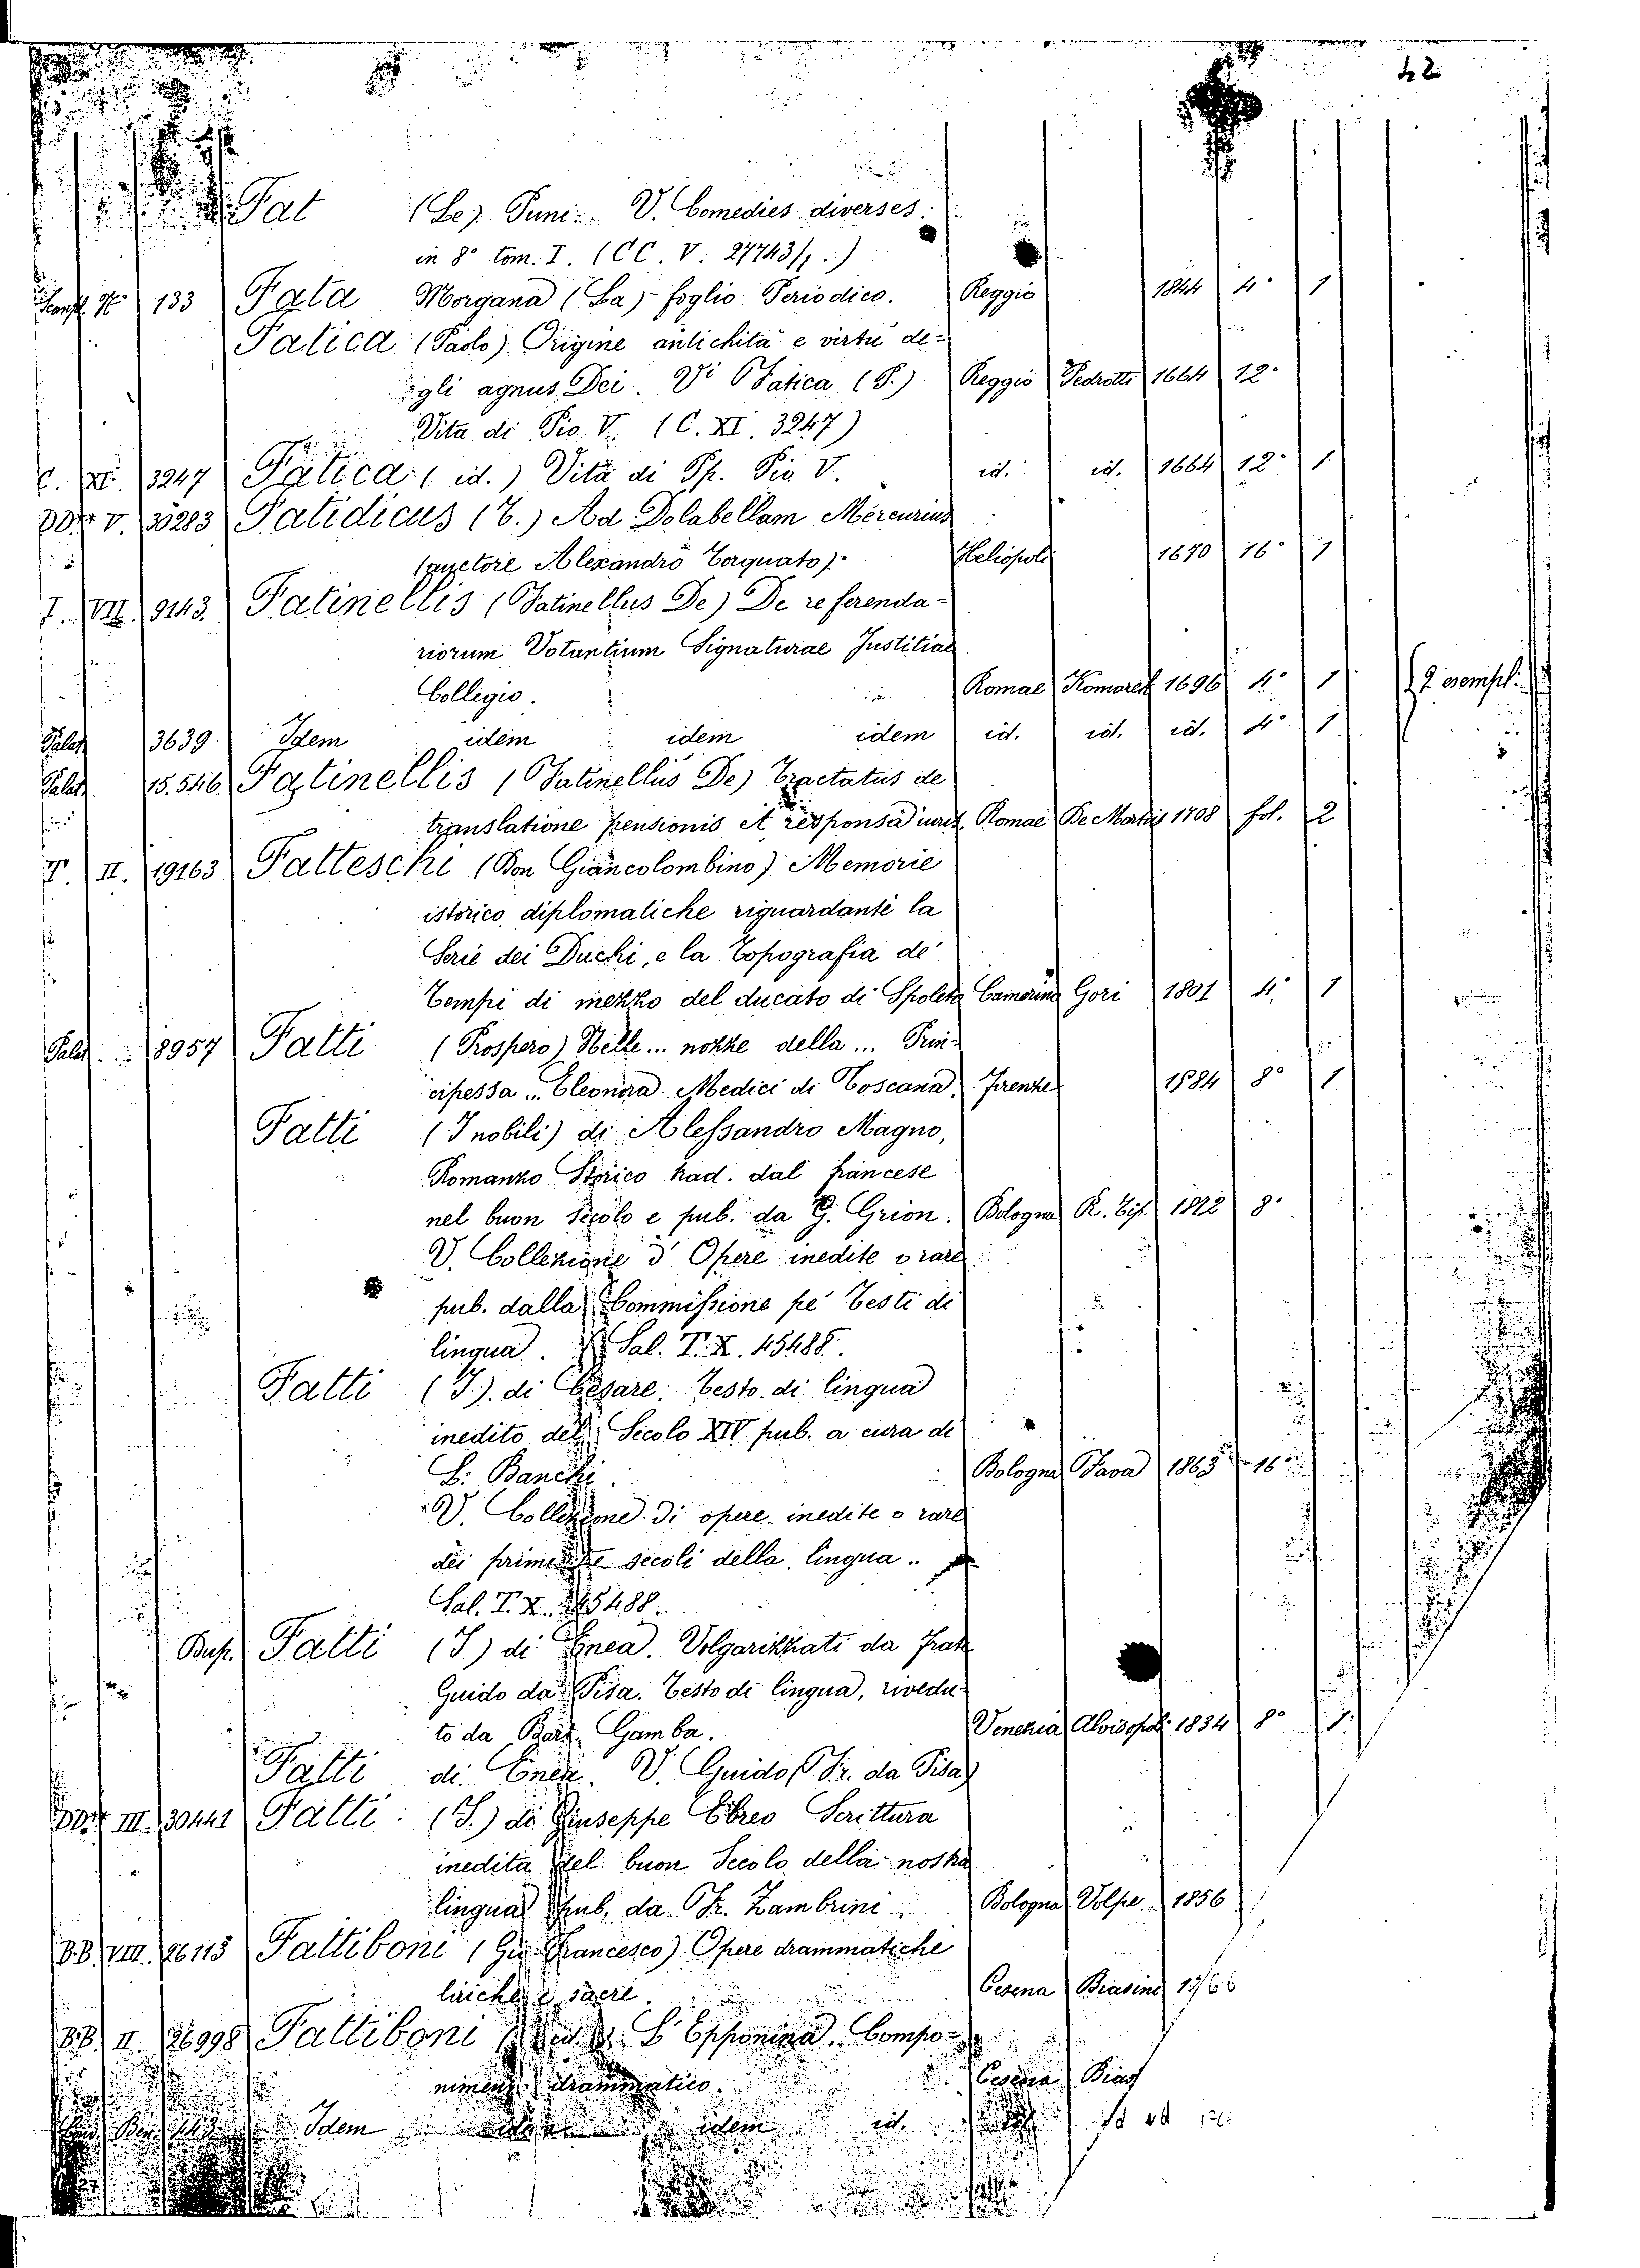 42
Fat (Le) Puni. V. Comedies diverses.
in 8° tom. I. (CC. V. 27743/1.)
133 Fata Morgana (La) foglio Periodico. Reggio 1844 4° 1
Fatica (Paolo) Origine antichità e virtù de-
gli agnus Dei. Di Fatica (P.) Reggio Pedrotti 1664 12°
Vita di Pio V. (C. XI. 3247)
C. XI. 3247 Fatica (id.) Vita di Pp. Pio V. id. id. 1664 12° 1
V. 30283 Fatidicus (T.) Ad Dolabellam Mercurius
(auctore Alexandro Torquato). Heliopoli 1670 16° 1
I. VII. 9143. Fatinellis (Fatinellus De) De referenda-
riorum Votantium Signaturae Justitiae
Collegio. Romae Komarek 1696 4° 1 2 esempl.
Palat 3639 Idem idem idem idem id. id. id. 4° 1
Palat 15.546 Fatinellis (Fatinellus De) Tractatus de
translatione pensionis et responsa iuris. Romae De Martiis 1708 fol. 2
T. II. 19163 Fatteschi (Don Giancolombino) Memorie
istorico diplomatiche riguardanti la
Serie dei Duchi, e la Topografia de'
Tempi di mezzo del ducato di Spoleto Camerino Gori 1801 4° 1
Palat. 8957 Fatti (Prospero) Nelle... nozze della ... Prin-
cipessa ... Eleonora Medici di Toscana. Firenze 1584 8° 1
Fatti (I nobili) di Alessandro Magno,
Romanzo Storico trad. dal francese
nel buon secolo e pub. da G. Grion. Bologna R. Tip. 1822 8°
V. Collezione d'Opere inedite o rare
pub. dalla Commissione pe' Testi di
lingua. Sal. T. X. 45488.
Fatti (I) di Cesare. Testo di lingua
inedito del Secolo XIV pub. a cura di
L. Banchi. Bologna Fava 1863 16°
V. Collezione di opere inedite o rare
dei primi tre secoli della lingua ..
Sal. T. X. 45488.
Busp. Fatti (I) di Enea. Volgarizzati da Frate
Guido da Pisa. Testo di lingua, rivedu-
to da Bart. Gamba. Venezia Alvisopoli 1834 8° 1
Fatti di Enea. V. Guido (Fr. da Pisa)
III. 30441 Fatti (I) di Giuseppe Ebreo Scrittura
inedita del buon Secolo della nostra
lingua pub. da Fr. Zambrini Bologna Volpe 1856
BB. VIII. 26113 Fattiboni (Gio. Francesco) Opere drammatiche
liriche e sacre. Cesena Biasini
BB. II. 26998 Fattiboni L'Epponina. Compo-
nimento drammatico. Cesena
Idem idem id.